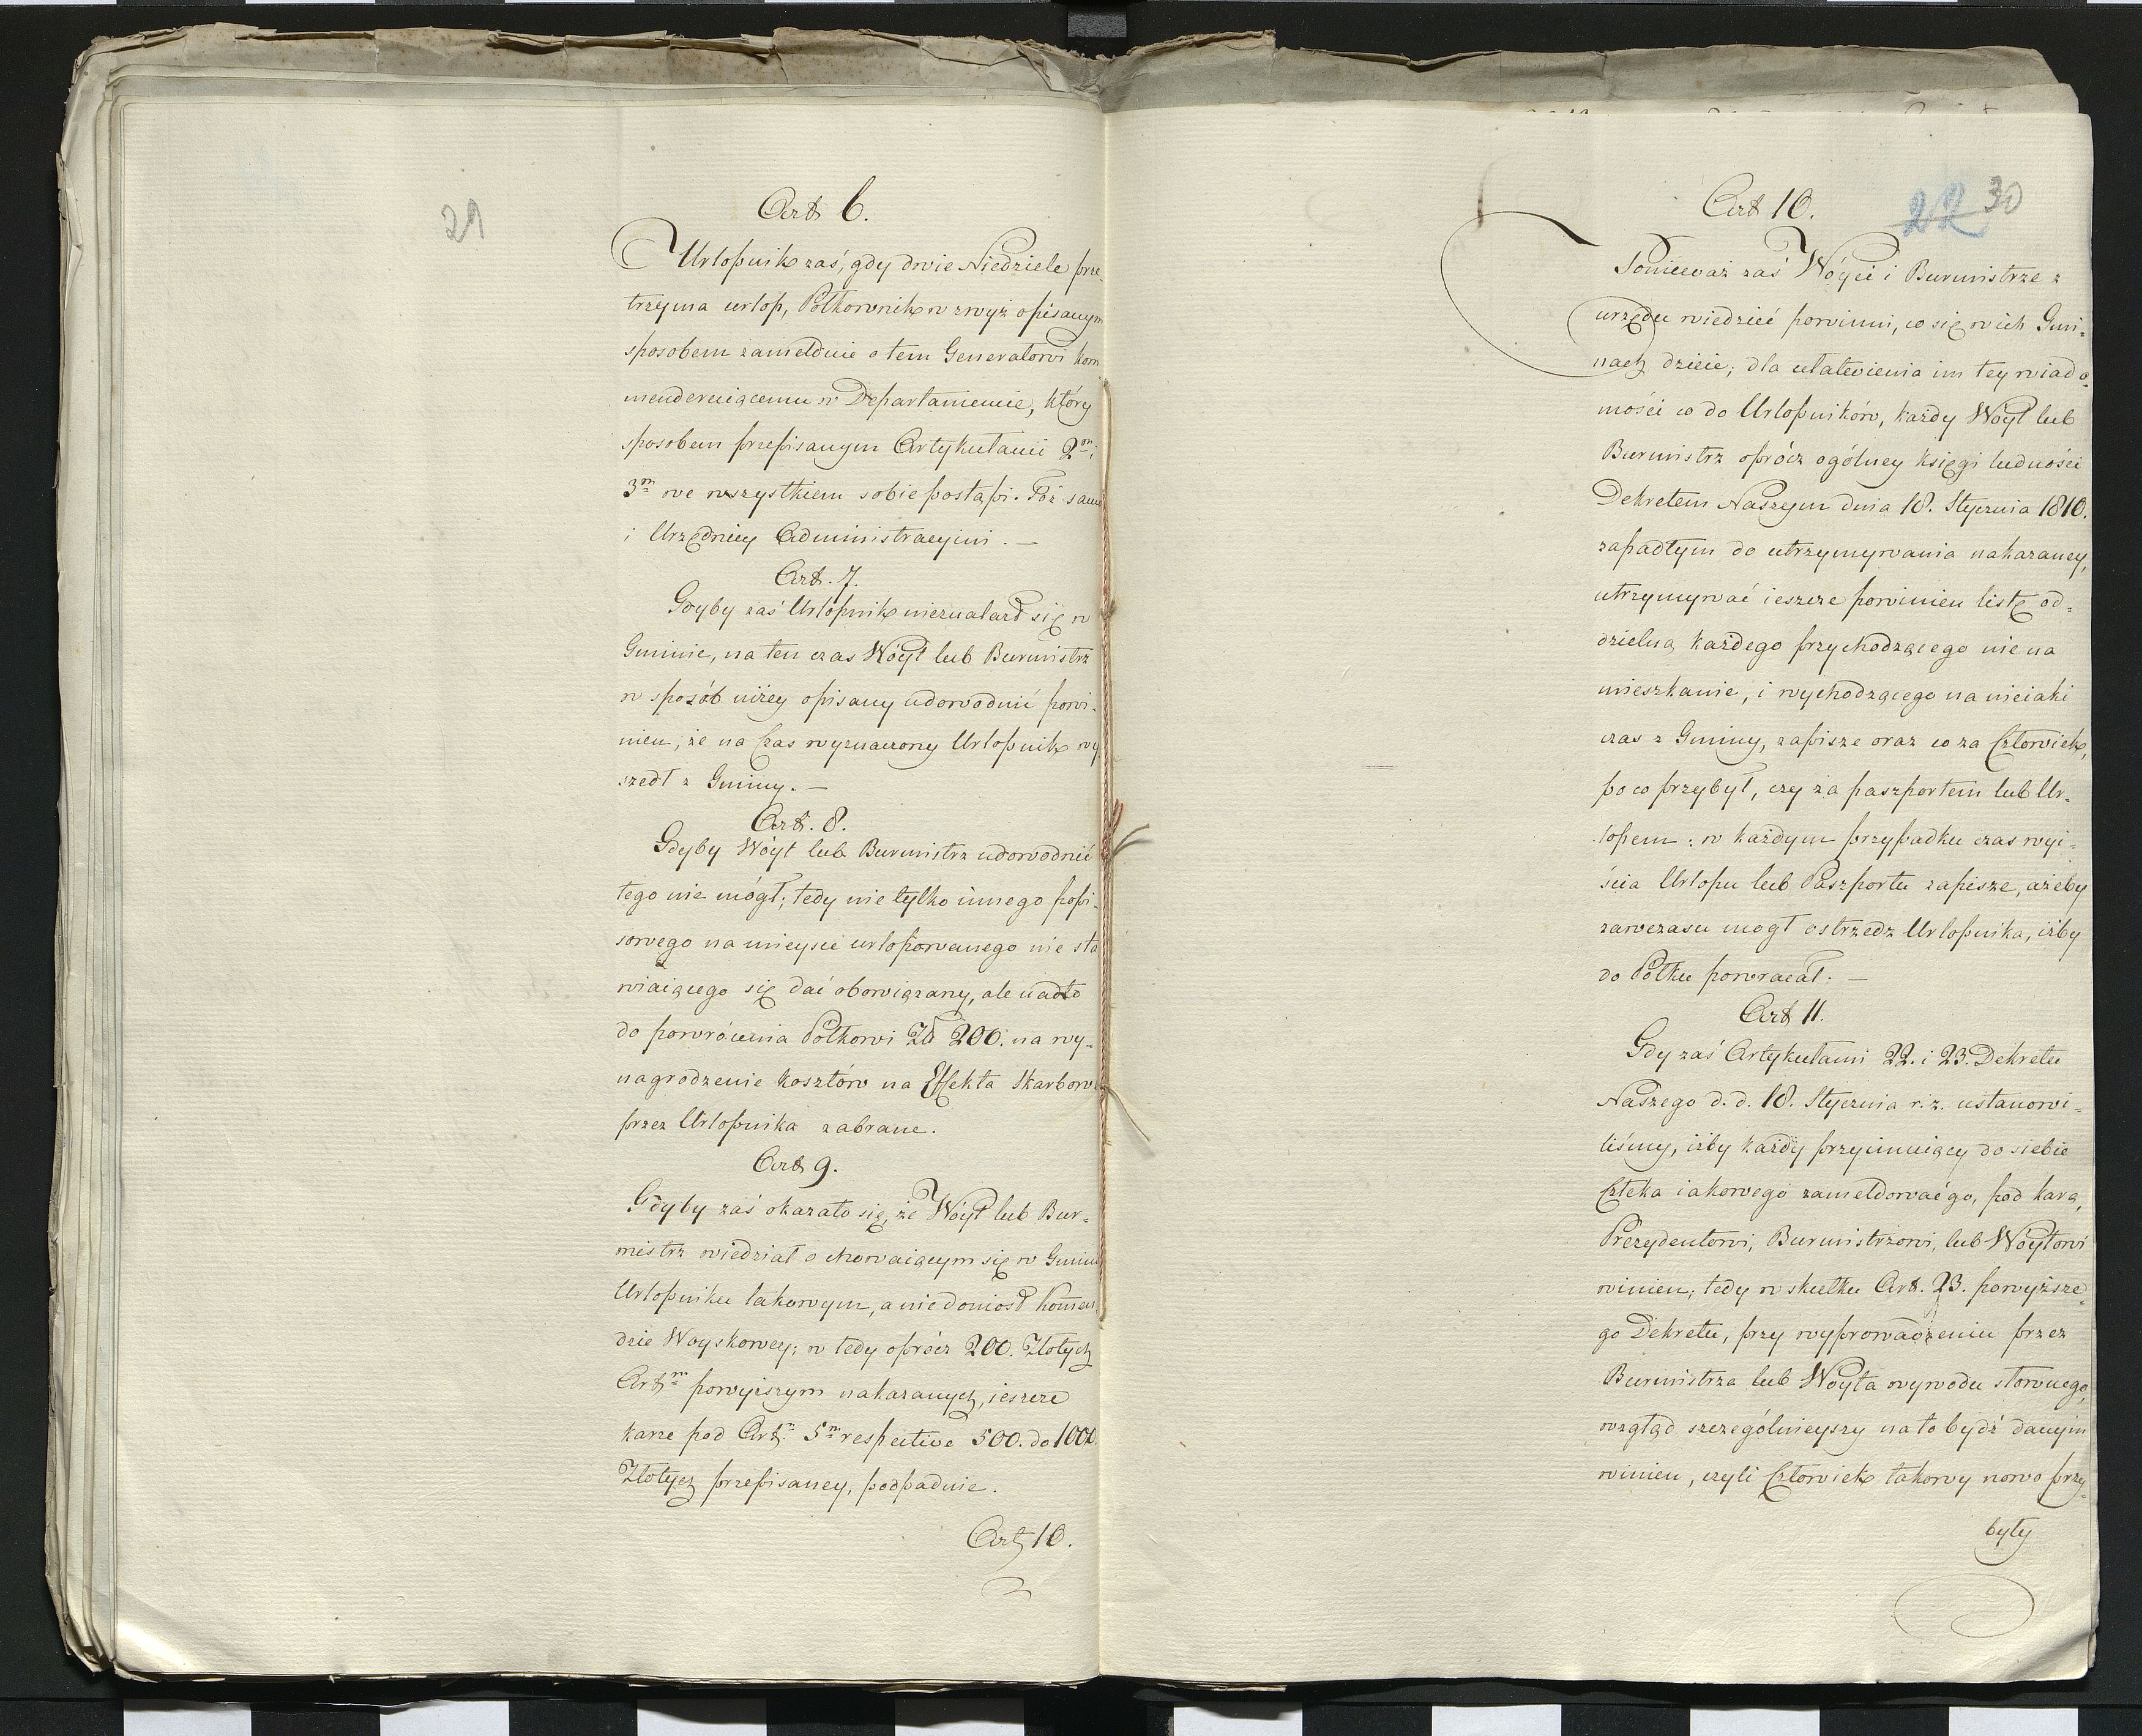 21
Art 6.
Urlopnik zaś, gdy dwie Niedziele prze
trzyma urlop, Półkownik w zwyż opisanym
sposobem zamelduie o tem Generałowi kom
menderuiącemu w Departamencie, który
sposobem przepisanym Artykułami 2m i
3m we wszystkiem sobie postąpi. Toż samo
i Urzędnicy Administracyini. —
Art. 7.
Gdyby zaś Urlopnik nieznalazł się w
Gminie, na ten czas Wóyt lub Burmistrz
w sposób niżey opisany udowodnić powi-
nien, że na czas wyznaczony Urlopnik wy
szedł z Gminy. —
Art. 8.
Gdyby Wóyt lub Burmistrz udowodnić
tego nie mógł; tedy nie tylko innego popi-
sowego na mieysce urlopowanego nie sta
wiaiącego się dać obowiązany, ale nadto
do powrócenia Półkowi Zł 200. na wy-
nagrodzenie kosztów na Effekta Skarbowe
przez Urlopnika zabrane.
Art 9.
Gdyby zaś okazało się, że Wóyt lub Bur-
mistrz wiedział o chowaiącym się w Gminie
Urlopniku takowym, a nie doniosł komen
dzie Woyskowey; w tedy oprócz 200. Złotych
Artm powyższym nakazanych, ieszcze
karze pod Artm 5m respective 500. do 1000.
Złotych przepisaney, podpadnie.
Art 10.
22 30
Art 10.
Ponieważ zaś Wóyci i Burmistrze z
urzędu wiedzieć powinni, co się w ich Gmi-
nach dzieie; dla ułatwienia im tey wiado-
mości co do Urlopników, każdy Wóyt lub
Burmistrz oprócz ogólney księgi ludności
Dekretem Naszym dnia 18. Stycznia 1810.
zapadłym do utrzymywania nakazaney,
utrzymywać ieszcze powinien listę od-
dzielną każdego przychodzącego nie na
mieszkanie, i wychodzącego na nieiaki
czas z Gminy, zapisze oraz co za Człowiek,
po co przybył, czy za paszportem lub Ur-
lopem: w każdym przypadku czas wyi-
ścia Urlopu lub Paszportu zapisze, ażeby
zawczasu mogł ostrzedz Urlopnika, iżby
do Półku powracał. —
Art 11.
Gdy zaś Artykułami 22. i 23. Dekretu
Naszego d. d. 18. Stycznia r. z. ustanowi-
liśmy, iżby każdy przyimuiący do siebie
Człeka iakowego zameldował go, pod karą,
Prezydentowi, Burmistrzowi, lub Wóytowi
winien; tedy w skutku Art. 23. powyższe-
go Dekretu, przy wyprowadzeniu przez
Burmistrza lub Wóyta wywodu słownego,
wzgląd szczególnieyszy na to bydź danym
winien, czyli Człowiek takowy nowo przy-
były